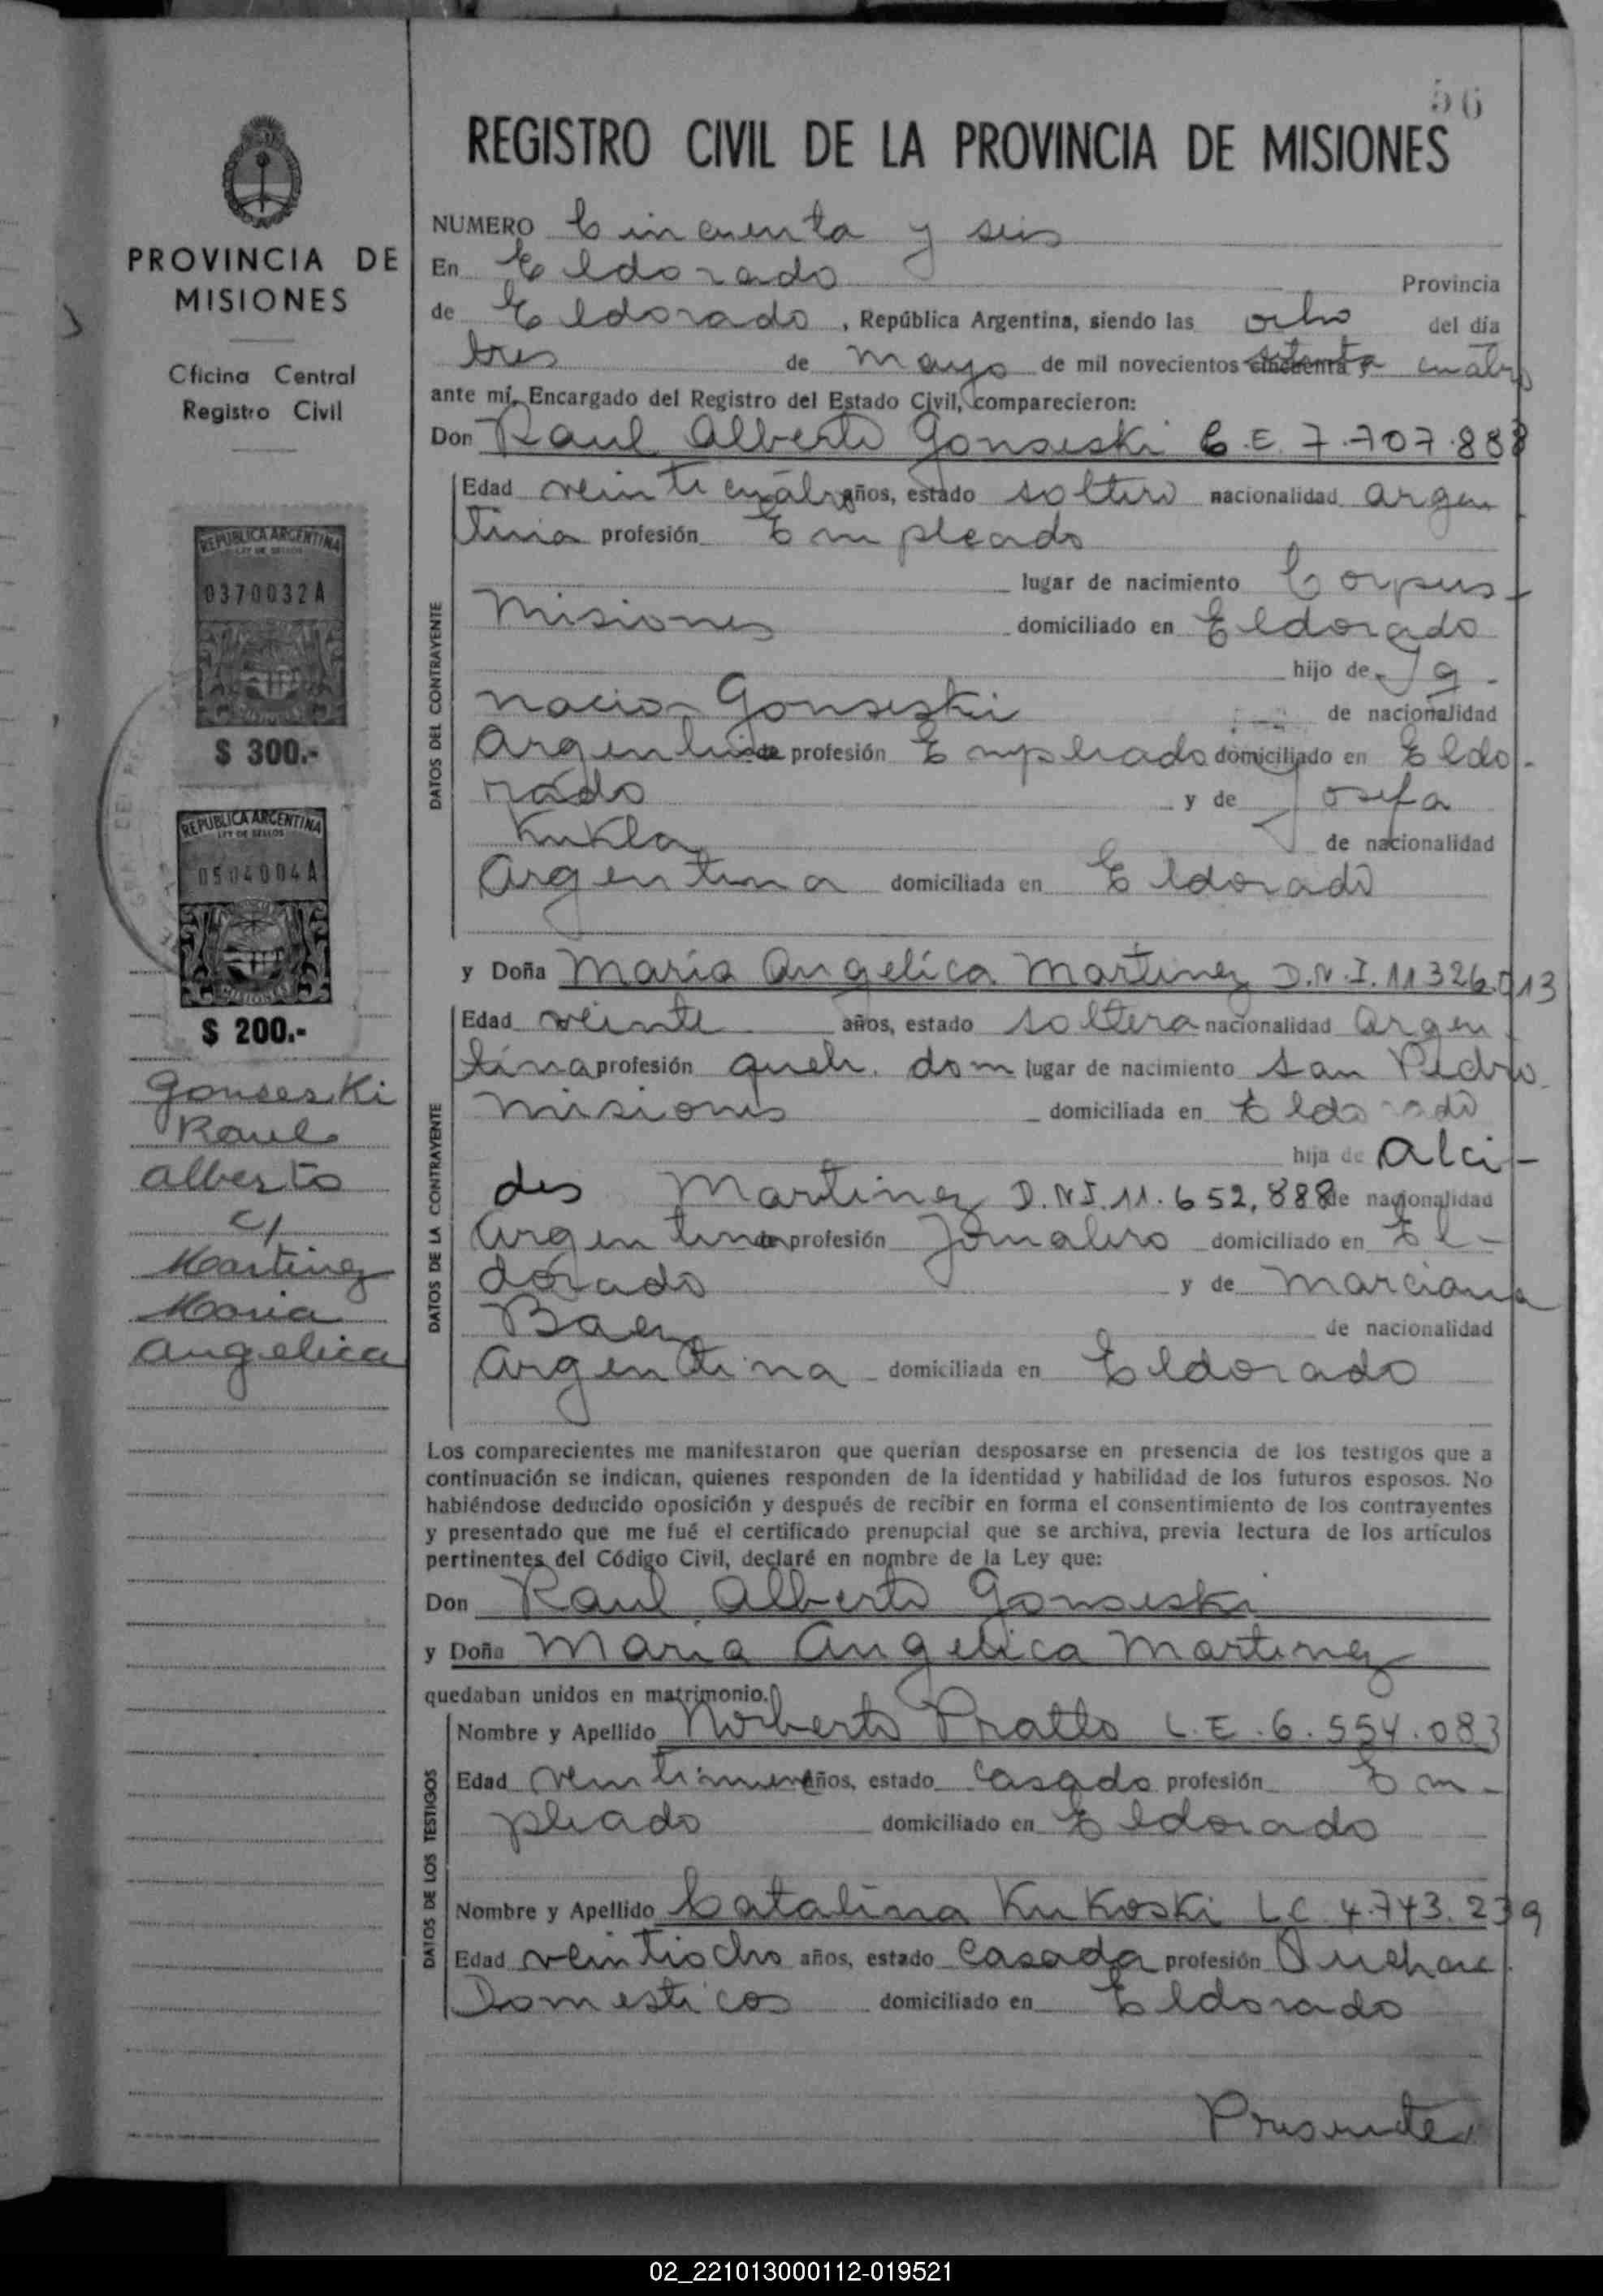 56
REGISTRO CIVIL DE LA PROVINCIA DE MISIONES
PROVINCIA DE
MISIONES
Oficina Central
Registro Civil
REPUBLICA ARGENTINA
LEY DE SELLOS
0370032A
MISIONES
$ 300.-
REPUBLICA ARGENTINA
LEY DE SELLOS
0504004A
MISIONES
$ 200.-
Gonseski
Raul
Alberto
c/
Martinez
Maria
Angelica
NUMERO Cincuenta y seis
En Eldorado Provincia
de Eldorado, República Argentina, siendo las ocho del día
tres de mayo de mil novecientos cincuenta y setenta cuatro
ante mí, Encargado del Registro del Estado Civil, comparecieron:
Don Raul Alberto Gonseski C.E. 7.707.888
DATOS DEL CONTRAYENTE
Edad veinti cuatro años, estado soltero nacionalidad argen
tina profesión Empleado
lugar de nacimiento Corpus -
Misiones domiciliado en Eldorado
hijo de Ig -
nacio Gonseski de nacionalidad
Argentino de profesión Empleado domiciliado en Eldo -
rado y de Josefa
Kukla de nacionalidad
Argentina domiciliada en Eldorado
y Doña Maria Angelica Martinez D.N.I. 11326.013
DATOS DE LA CONTRAYENTE
Edad veinte años, estado soltera nacionalidad Argen
tina profesión queh. dom lugar de nacimiento San Pedro
Misiones domiciliada en Eldorado
hija de Alci -
des Martinez D.N.I. 11.652,888 de nacionalidad
Argentina de profesión Jornalero domiciliado en El -
dorado y de Marciana
Baez de nacionalidad
Argentina domiciliada en Eldorado
Los comparecientes me manifestaron que querían desposarse en presencia de los testigos que a
continuación se indican, quienes responden de la identidad y habilidad de los futuros esposos. No
habiéndose deducido oposición y después de recibir en forma el consentimiento de los contrayentes
y presentado que me fué el certificado prenupcial que se archiva, previa lectura de los artículos
pertinentes del Código Civil, declaré en nombre de la Ley que:
Don Raul Alberto Gonseski
y Doña Maria Angelica Martinez
quedaban unidos en matrimonio.
DATOS DE LOS TESTIGOS
Nombre y Apellido Norberto Pratto L.E. 6.554.083
Edad veintinueve años, estado Casado profesión Em -
pleado domiciliado en Eldorado
Nombre y Apellido Catalina Kukoski L.C. 4.743.239
Edad veintiocho años, estado Casada profesión Quehac.
Domesticos domiciliado en Eldorado
Presente
02_221013000112-019521